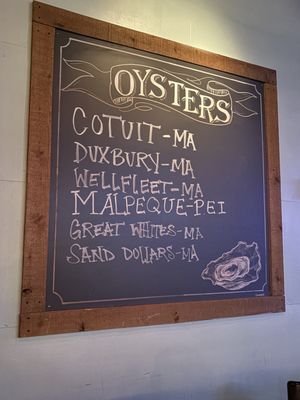 OYSTERS
COTUIT-MA
DUXBURY-MA
WELLFLEET-MA
MALPEQUE-PEI
GREAT WHITES-MA
SAND DOLLARS-MA